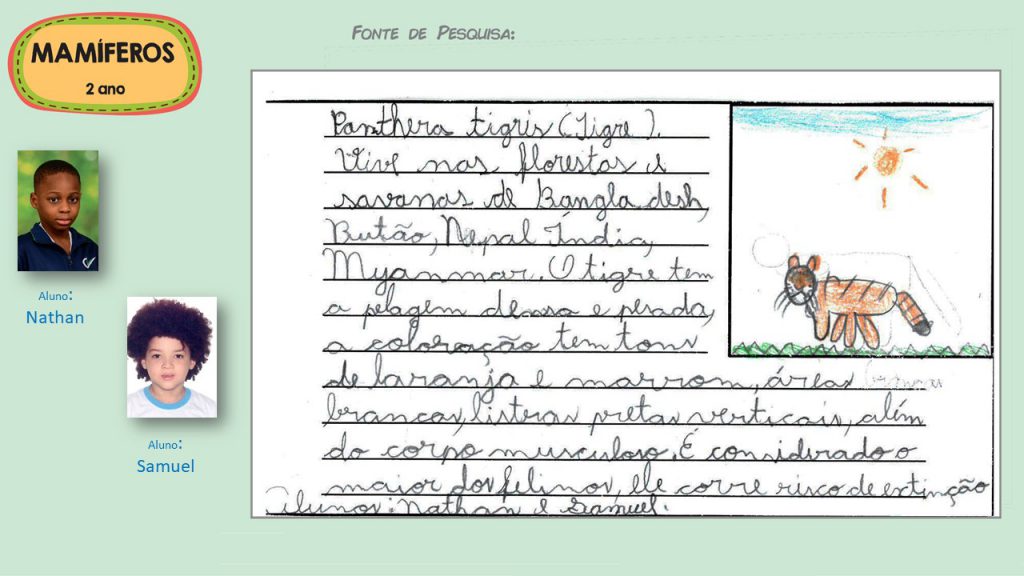 MAMÍFEROS
2 ano
FONTE DE PESQUISA:
Aluno:
Nathan
Aluno:
Samuel
Panthera tigris (Tigre).
Vive nas florestas e
savanas de Bangla desh,
Butão, Nepal Índia,
Myanmar. O tigre tem
a pelagem densa e pesada,
a coloração tem tons
de laranja e marrom, áreas
brancas, listras pretas verticais, além
do corpo musculoso. É considerado o
maior dos felinos, ele corre risco de extinção
Alunos: Nathan e Samuel.